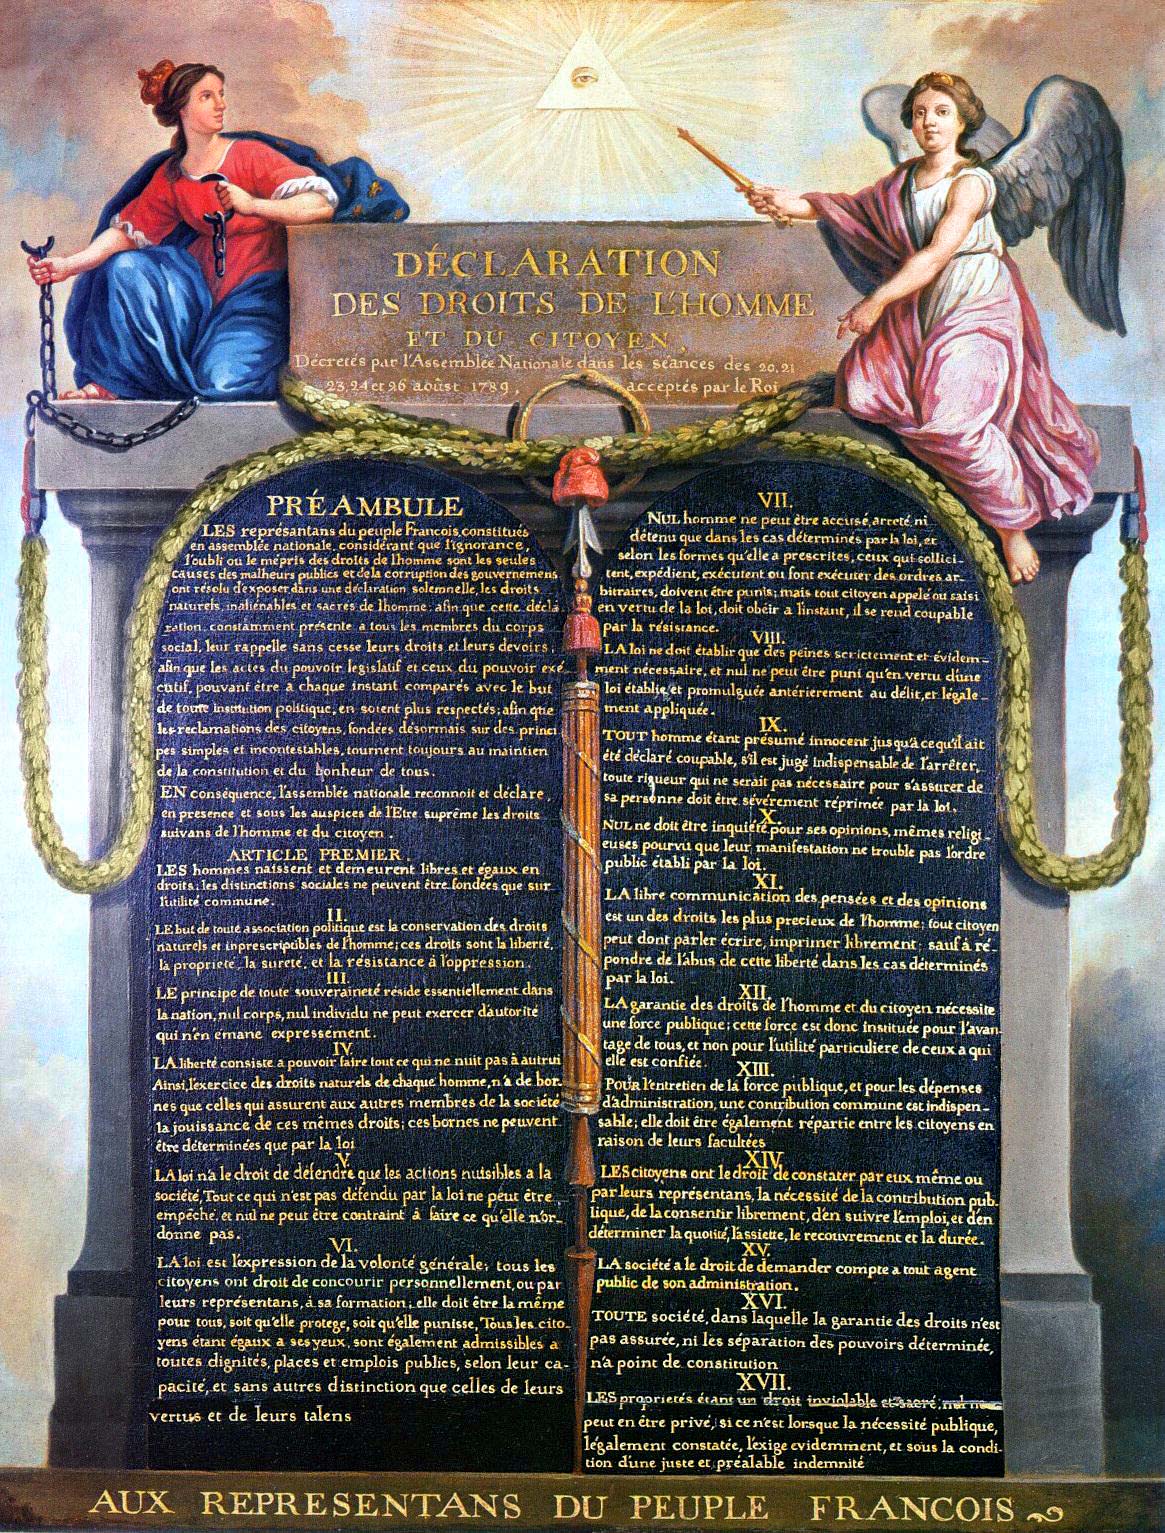 DÉCLARATION
DES DROITS DE L'HOMME
ET DU CITOYEN,
Décretés par l'Assemblée Nationale dans les séances des 20, 21
23, 24 et 26 août 1789, acceptés par le Roi
PRÉAMBULE
LES représantans du peuple François, constitués
en assemblée nationale, considérant que l'ignorance,
l'oubli ou le mépris des droits de l'homme sont les seules
causes des malheurs publics et de la corruption des gouvernemens
ont résolu d'exposer dans une déclaration solemnelle, les droits
naturels, inaliénables et sacrés de l'homme; afin que cette décla
ration, constamment présente a tous les membres du corps
social, leur rappelle sans cesse leurs droits et leurs devoirs;
afin que les actes du pouvoir législatif et ceux du pouvoir exé
cutif, pouvant être a chaque instant comparés avec le but
de toute institution politique, en soient plus respectés; afin que
les reclamations des citoyens, fondées désormais sur des princi
pes simples et incontestables, tournent toujours au maintien
de la constitution et du bonheur de tous.
EN conséquence, l'assemblée nationale reconnoit et déclare,
en presence et sous les auspices de l'Etre suprême les droits
suivans de l'homme et du citoyen.
ARTICLE PREMIER.
LES hommes naissent et demeurent libres et égaux en
droits; les distinctions sociales ne peuvent être fondées que sur
l'utilité commune.
II.
LE but de toute association politique est la conservation des droits
naturels et inprescriptibles de l'homme; ces droits sont la liberté,
la propriété, la sureté, et la résistance à l'oppression.
III.
LE principe de toute souveraineté réside essentiellement dans
la nation, nul corps, nul individu ne peut exercer d'autorité
qui n'en emane expressement.
IV.
LA liberté consiste a pouvoir faire tout ce qui ne nuit pas à autrui
Ainsi, l'exercice des droits naturels de chaque homme, n'a de bor-
nes que celles qui assurent aux autres membres de la société
la jouissance de ces mêmes droits; ces bornes ne peuvent
être déterminées que par la loi
V.
LA loi n'a le droit de défendre que les actions nuisibles a la
société. Tout ce qui n'est pas défendu par la loi ne peut être
empêché, et nul ne peut être contraint à faire ce qu'elle n'or-
donne pas.
VI.
LA loi est l'expression de la volonté générale; tous les
citoyens ont droit de concourir personnellement, ou par
leurs représentans, à sa formation; elle doit être la même
pour tous, soit qu'elle protege, soit qu'elle punisse, Tous les cito-
yens étant égaux a ses yeux, sont également admissibles a
toutes dignités, places et emplois publics, selon leur ca-
pacité, et sans autres distinction que celles de leurs
vertus et de leurs talens
VII.
NUL homme ne peut être accusé, arreté, ni
détenu que dans les cas déterminés par la loi, et
selon les formes qu'elle a prescrites, ceux qui sollici-
tent, expédient, exécutent ou font exécuter des ordres ar-
bitraires, doivent être punis; mais tout citoyen appelé ou saisi
en vertu de la loi, doit obéir a l'instant, il se rend coupable
par la résistance.
VIII.
LA loi ne doit établir que des peines strictement et évidem-
ment nécessaire, et nul ne peut être puni qu'en vertu d'une
loi établie et promulguée antérierement au délit, et légale-
ment appliquée.
IX.
TOUT homme étant présumé innocent jusqu'a ce qu'il ait
été déclaré coupable, s'il est jugé indispensable de l'arrêter,
toute rigueur qui ne serait pas nécessaire pour s'assurer de
sa personne doit être sévérement réprimée par la loi.
X.
NUL ne doit être inquiété pour ses opinions, mêmes religi-
euses pourvu que leur manifestation ne trouble pas l'ordre
public établi par la loi.
XI.
LA libre communication des pensées et des opinions
est un des droits les plus precieux de l'homme; tout citoyen
peut dont parler écrire, imprimer librement; sauf à ré-
pondre de l'abus de cette liberté dans les cas déterminés
par la loi.
XII.
LA garantie des droits de l'homme et du citoyen nécessite
une force publique; cette force est donc instituée pour l'avan-
tage de tous, et non pour l'utilité particuliere de ceux a qui
elle est confiée.
XIII.
POUR l'entretien de la force publique, et pour les dépenses
d'administration, une contribution commune est indispen-
sable; elle doit être également répartie entre les citoyens en
raison de leurs facultées
XIV.
LES citoyens ont le droit de constater par eux même ou
par leurs représentans, la nécessité de la contribution pub-
lique, de la consentir librement, d'en suivre l'emploi, et d'en
déterminer la quotité, l'assiette, le recouvrement et la durée.
XV.
LA société a le droit de demander compte a tout agent
public de son administration.
XVI.
TOUTE société, dans laquelle la garantie des droits n'est
pas assurée, ni les séparation des pouvoirs déterminée,
n'a point de constitution
XVII.
LES proprietés étant un droit inviolable et sacré, nul ne
peut en être privé, si ce n'est lorsque la nécessité publique,
légalement constatée, l'exige evidemment, et sous la condi-
tion d'une juste et préalable indemnité
AUX REPRESENTANS DU PEUPLE FRANCOIS